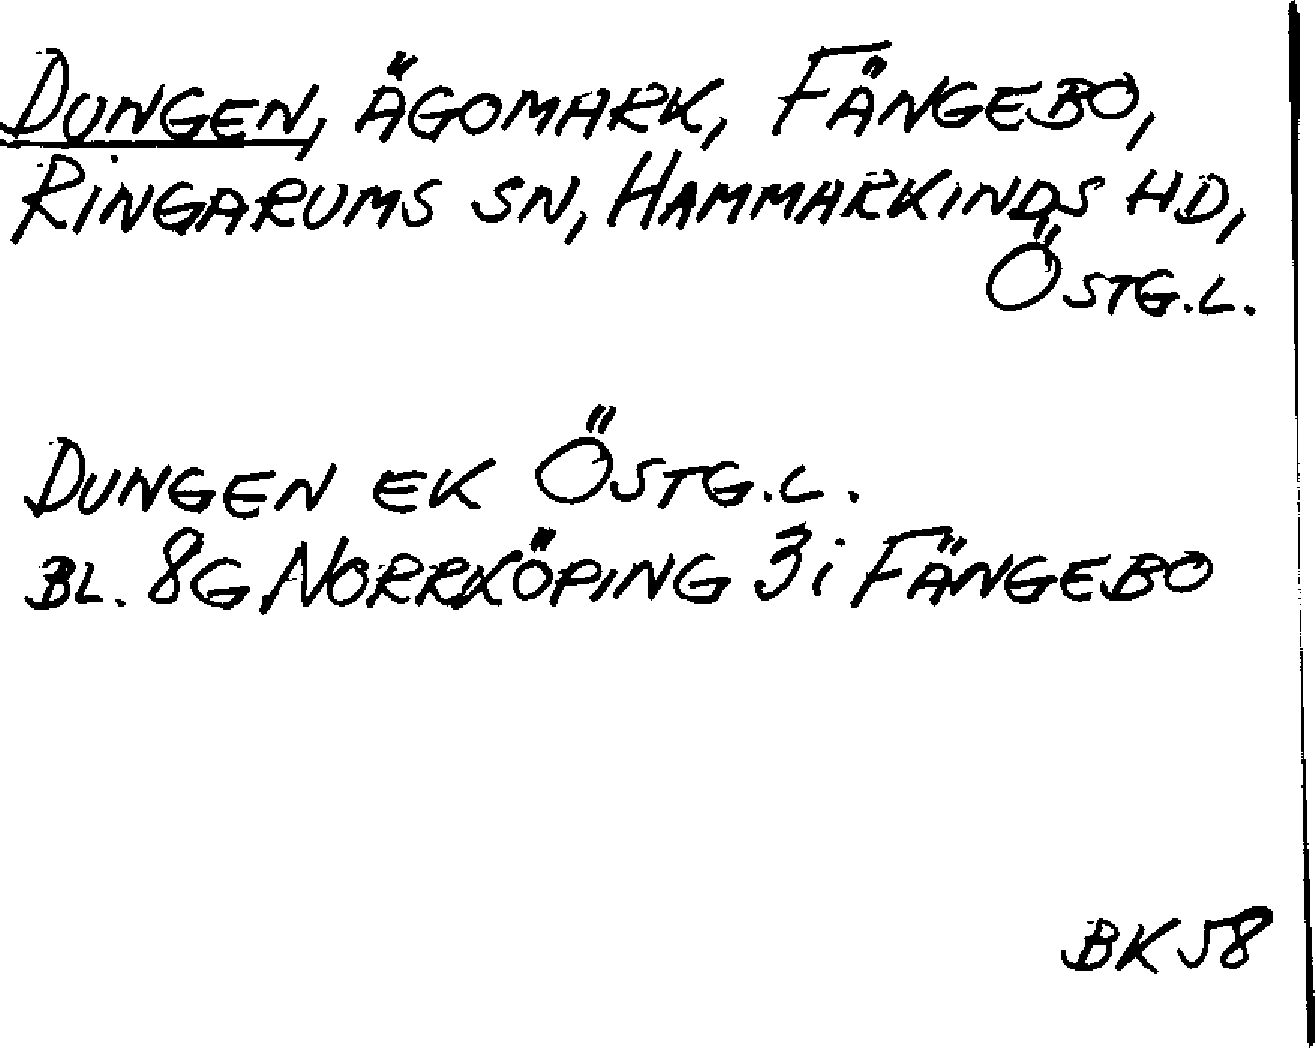 DUNGEN, ÄGOMARK, FÄNGEBO,
RINGARUMS SN, HAMMARKINDS HD,
ÖSTG.L.
DUNGEN EK ÖSTG.L.
BL. 8G NORRKÖPING 3i FÄNGEBO
BK 58